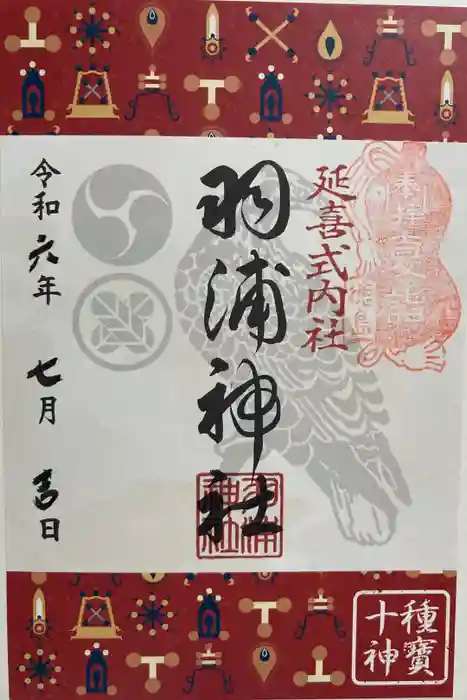 延喜式内社
羽浦神社
令和六年 七月 吉日
羽浦神社
十種神寶